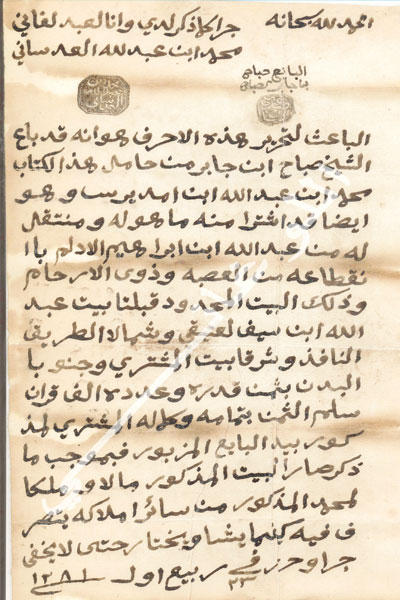 الحمد لله سبحانه
جرا كما ذكر لدي وانا العبد لفاني
محمد ابن عبد الله العدساني
البايع صباح
ابن جابر صباح
الباعث لتحرير هذه الاحرف هو انه قد باع
الشيخ صباح ابن جابر من حامل هذ الكتاب
محمد ابن عبد الله ابن امديرس وهو
ايضا قد اشترا منه ما هو له ومنتقل
له من عبد الله ابن ابراهيم الادلم باا
نقطاعه من العصبه وذوى الارحام
وذلك البيت المحدود قبلتا بيت عبد
الله ابن سيف لعتيقى وشمالا الطريق
النافذ وشرقا بيت المشتري وجنوبا
البدن بثمن قدره وعدده الف قران
سلم الثمن بتمامه وكماله المشتري لمذ
كور بيد البايع المزبور فبموجب ما
ذكر صار البيت المذكور مالا وملكا
لمحمد المذكور من ساير املاكه يتصر
ف فيه كيفما يشا ويختار حتى لا يخفى
جرا وحرر في ٢٣ ربيع اول ١٢٨١